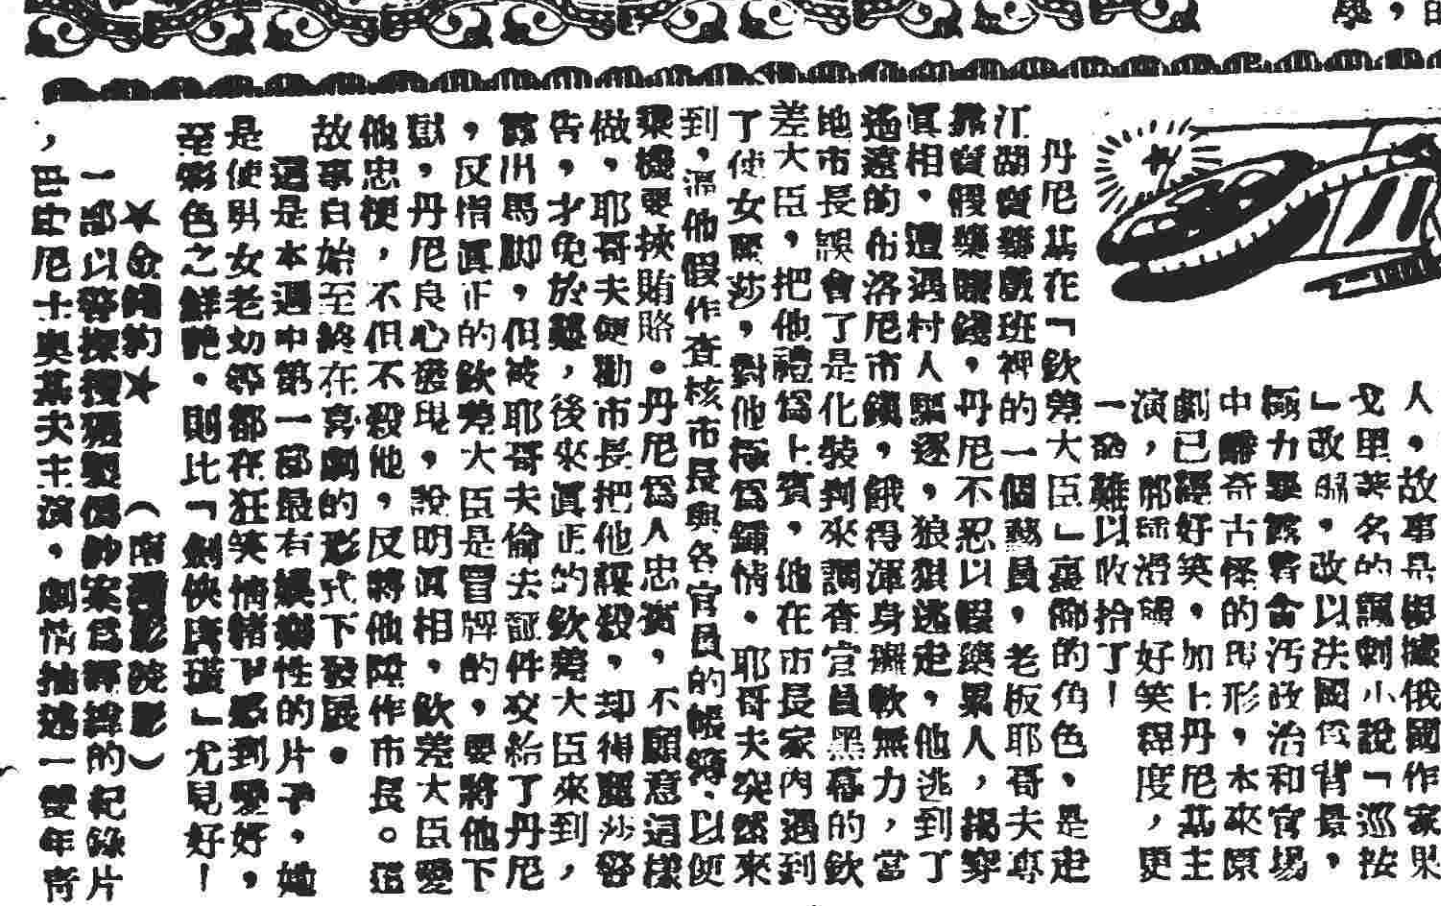 學，
人，故事是根據俄國作家果
戈里著名的諷刺小說「巡按
」改編，改以法國為背景，
極力暴露貪官污吏政治和官場
中離奇古怪的現形，本來原
劇已經好笑，加上丹尼基主
演，那滑稽好笑程度，更
一發難以收拾了！
丹尼基在「欽差大臣」裏飾的角色，是走
江湖賣藥戲班裡的一個藝員，老板耶哥夫專
靠賣假藥賺錢，丹尼不忍以假藥累人，揭穿
眞相，遭遇村人驅逐，狼狽逃走，他逃到了
遙遠的布洛尼市鎮，餓得渾身癱軟無力，當
地市長誤會了是化裝到來調查官員黑幕的欽
差大臣，把他禮為上賓，他在市長家內遇到
了使女麗莎，對他極為鍾情。耶哥夫突然來
到，逼他假作查核市長與各官員的帳簿、以便
乘機要挾賄賂。丹尼為人忠實，不願意這樣
做，耶哥夫便勸市長把他謀殺，却得麗莎密
告，才免於難，後來眞正的欽差大臣來到，
露出馬脚，但被耶哥夫偷去証件交給了丹尼
，反指眞正的欽差大臣是冒牌的，要將他下
獄，丹尼良心發現，說明眞相，欽差大臣愛
他忠梗，不但不殺他，反將他陞作市長。這
故事自始至終在喜劇的形式下發展。
這是本週中第一部最有娛樂性的片子，她
是使男女老幼等都在狂笑情緒下感到愛好，
至彩色之鮮艷，則比「劍俠唐璜」尤見好！
★金鎖約★（南洋影院影）
一部以警探搜破製僞鈔案為經緯的紀錄片
，巴史尼士奥基夫主演，劇情抽述一雙年靑